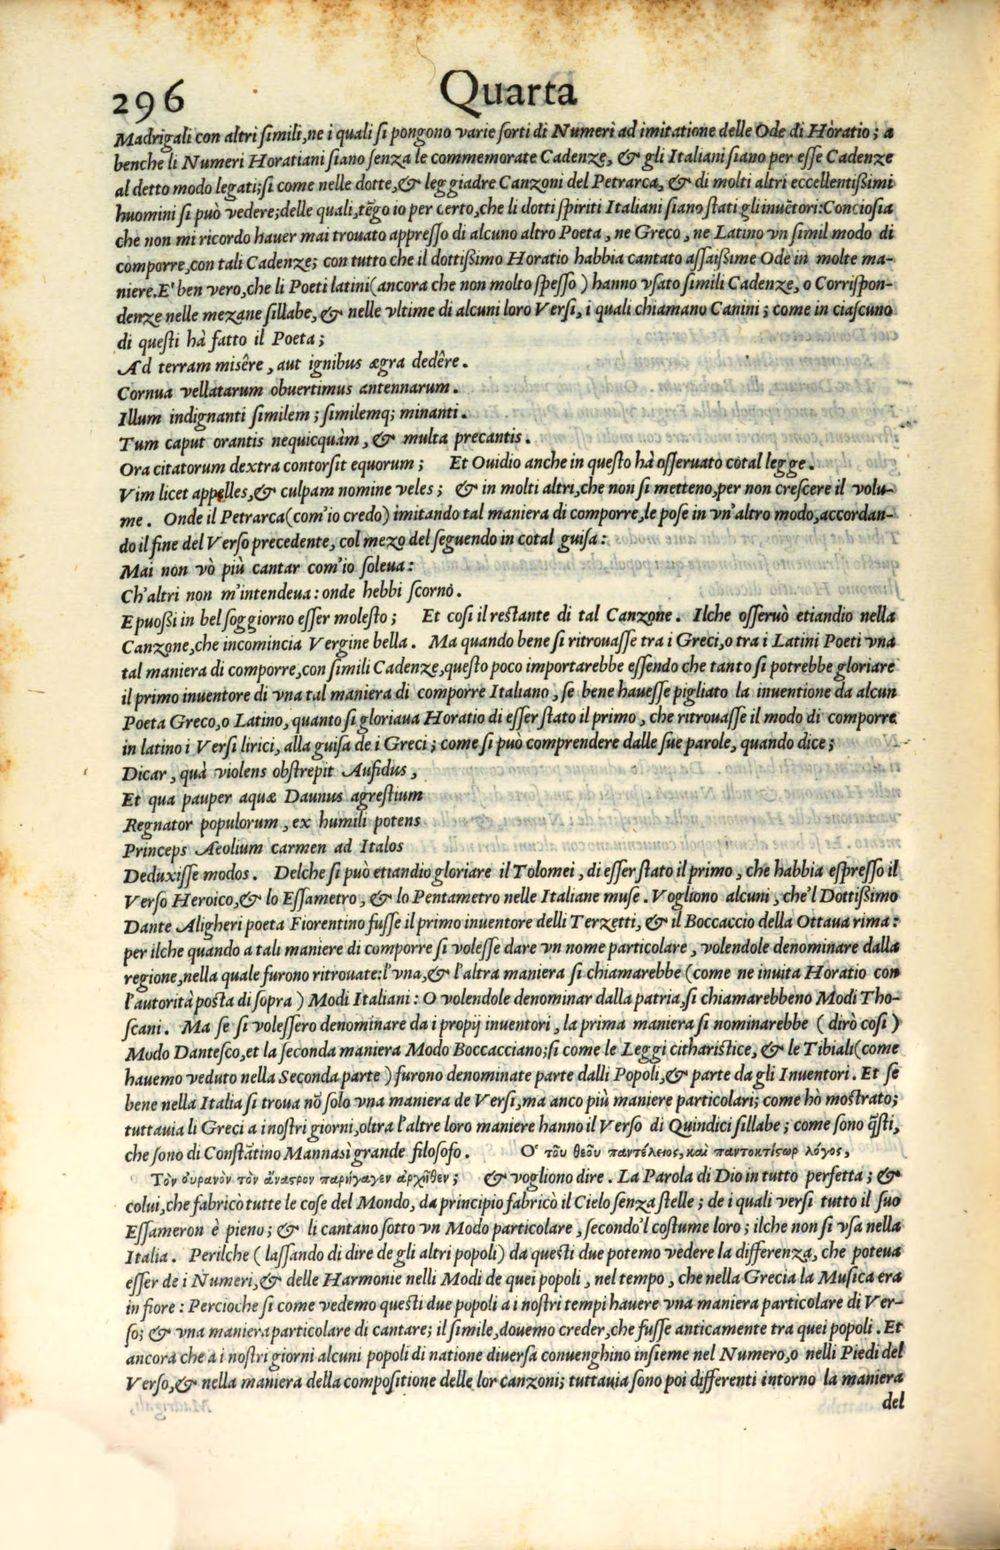 296 Quarta
Madrigali con altri simili, ne i quali si pongono varie sorti di Numeri ad imitatione delle Ode di Horatio; a
benche li Numeri Horatiani siano senza le commemorate Cadenze, & gli Italiani siano per esse Cadenze
al detto modo legati; si come nelle dotte, & leggiadre Canzoni del Petrarca, & di molti altri eccellentißimi
huomini si può vedere; delle quali, tẽgo io per certo, che li dotti spiriti Italiani siano stati gli inuẽtori: Conciosia
che non mi ricordo hauer mai trouato appresso di alcuno altro Poeta, ne Greco, ne Latino vn simil modo di
comporre, con tali Cadenze; con tutto che il dottißimo Horatio habbia cantato assaißime Ode in molte ma-
niere. E' ben vero, che li Poeti latini (ancora che non molto spesso) hanno vsato simili Cadenze, o Corrispon-
denze nelle mezane sillabe, & nelle vltime di alcuni loro Versi, i quali chiamano Canini; come in ciascuno
di questi hà fatto il Poeta;
Ad terram misêre, aut ignibus ægra dedêre.
Cornua vellatarum obuertimus antennarum.
Illum indignanti similem; similemq; minanti.
Tum caput orantis nequicquàm, & multa precantis.
Ora citatorum dextra contorsit equorum; Et Ouidio anche in questo hà osseruato cotal legge.
Vim licet appelles, & culpam nomine veles; & in molti altri, che non si metteno, per non crescere il volu-
me. Onde il Petrarca (com'io credo) imitando tal maniera di comporre, le pose in vn'altro modo, accordan-
do il fine del Verso precedente, col mezo del seguendo in cotal guisa:
Mai non vò più cantar com'io soleua:
Ch'altri non m'intendeua: onde hebbi scorno.
E puossi in bel soggiorno esser molesto; Et cosi il restante di tal Canzone. Ilche osseruò etiandio nella
Canzone, che incomincia Vergine bella. Ma quando bene si ritrouasse tra i Greci, o tra i Latini Poeti vna
tal maniera di comporre, con simili Cadenze, questo poco importarebbe essendo che tanto si potrebbe gloriare
il primo inuentore di vna tal maniera di comporre Italiano, se bene hauesse pigliato la inuentione da alcun
Poeta Greco, o Latino, quanto si gloriaua Horatio di esser stato il primo, che ritrouasse il modo di comporre
in latino i Versi lirici, alla guisa de i Greci; come si può comprendere dalle sue parole, quando dice;
Dicar, quà violens obstrepit Aufidus,
Et qua pauper aquæ Daunus agrestium
Regnator populorum, ex humili potens
Princeps Aeolium carmen ad Italos
Deduxisse modos. Delche si può etiandio gloriare il Tolomei, di esser stato il primo, che habbia espresso il
Verso Heroico, & lo Essametro, & lo Pentametro nelle Italiane muse. Vogliono alcuni, che'l Dottißimo
Dante Aligheri poeta Fiorentino fusse il primo inuentore delli Terzetti, & il Boccaccio della Ottaua rima:
per ilche quando a tali maniere di comporre si volesse dare vn nome particolare, volendole denominare dalla
regione, nella quale furono ritrouate: l'vna, & l'altra maniera si chiamarebbe (come ne inuita Horatio con
l'autorità posta di sopra) Modi Italiani: O volendole denominar dalla patria, si chiamarebbeno Modi Tho-
scani. Ma se si volessero denominare da i propij inuentori, la prima maniera si nominarebbe (dirò cosi)
Modo Dantesco, et la seconda maniera Modo Boccacciano; si come le Leggi citharistice, & le Tibiali (come
hauemo veduto nella Seconda parte) furono denominate parte dalli Popoli, & parte da gli Inuentori. Et se
bene nella Italia si troua nõ solo vna maniera de Versi, ma anco più maniere particolari; come hò mostrato;
tuttauia li Greci a i nostri giorni, oltra l'altre loro maniere hanno il Verso di Quindici sillabe; come sono q̃sti,
che sono di Constãtino Mannasì grande filosofo. Ο' τοῦ θεοῦ παντέλειος, καὶ παντοκτίσωρ λόγος,
Τὸν οὐρανὸν τὸν ἄναστρον παρήγαγεν ἀρχῆθεν; & vogliono dire. La Parola di Dio in tutto perfetta; &
colui, che fabricò tutte le cose del Mondo, da principio fabricò il Cielo senza stelle; de i quali versi tutto il suo
Essameron è pieno; & li cantano sotto vn Modo particolare, secondo'l costume loro; ilche non si vsa nella
Italia. Perilche (lassando di dire de gli altri popoli) da questi due potemo vedere la differenza, che poteua
esser de i Numeri, & delle Harmonie nelli Modi de quei popoli, nel tempo, che nella Grecia la Musica era
in fiore: Percioche si come vedemo questi due popoli a i nostri tempi hauere vna maniera particolare di Ver-
so; & vna maniera particolare di cantare; il simile, douemo creder, che fusse anticamente tra quei popoli. Et
ancora che a i nostri giorni alcuni popoli di natione diuersa conuenghino insieme nel Numero, o nelli Piedi del
Verso, & nella maniera della compositione delle lor canzoni; tuttauia sono poi differenti intorno la maniera
del